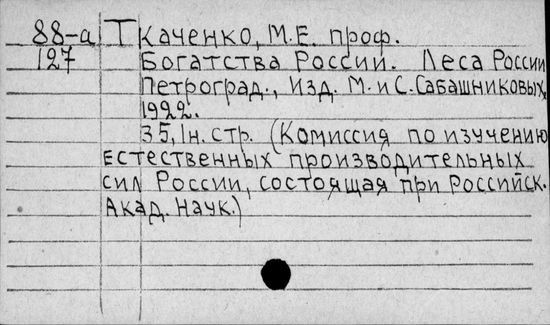 88-а Ткаченко, М.Е. проф.
127 Богатства России. Леса России
Петроград., Изд. М. и С. Сабашниковых,
1922.
35, 1н. стр. (Комиссия по изучению
естественных производительных
сил России, состоящая при Российск.
Акад. Наук.)